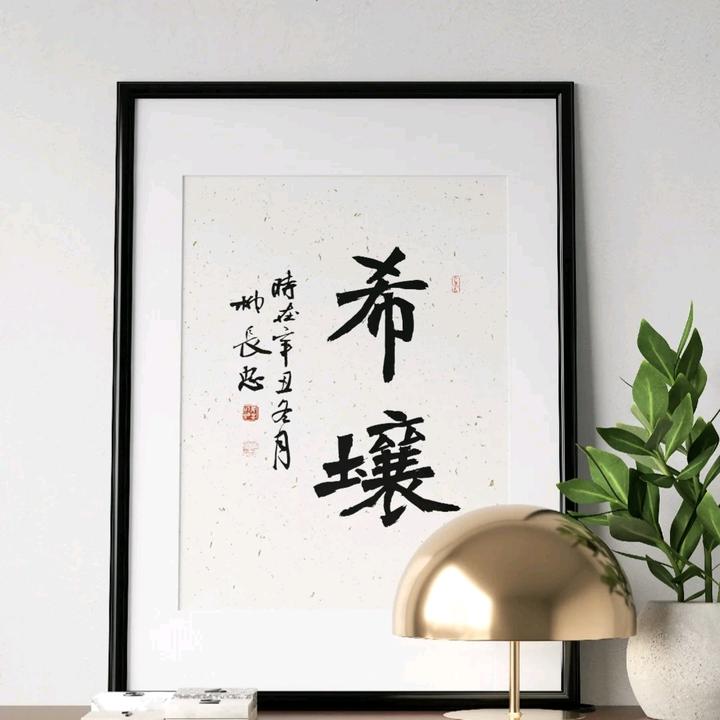 希壤
時在辛丑冬月
柳長忠